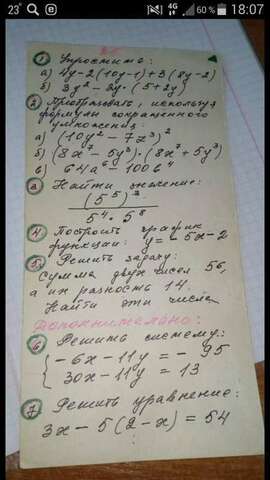 23° 4G 60% 18:07
① Упростить:
а) 4y-2(10y-1)+3(8y-2)
б) 3y²-3y·(5+2y)
② Преобразовать, используя
формулы сокращенного
умножения
а) (10y²-7z³)²
б) (8x⁷-5y³)·(8x⁷+5y³)
в) 64a⁶-100b⁴
③ Найти значение:
(5⁵)³
5⁴·5⁸
④ Построить график
функции: y=-5x-2
⑤ Решить задачу:
Сумма двух чисел 56,
а их разность 14.
Найти эти числа
Дополнительно:
⑥ Решить систему:
-6x-11y=-95
30x-11y=13
⑦ Решить уравнение:
3x-5(2-x)=54